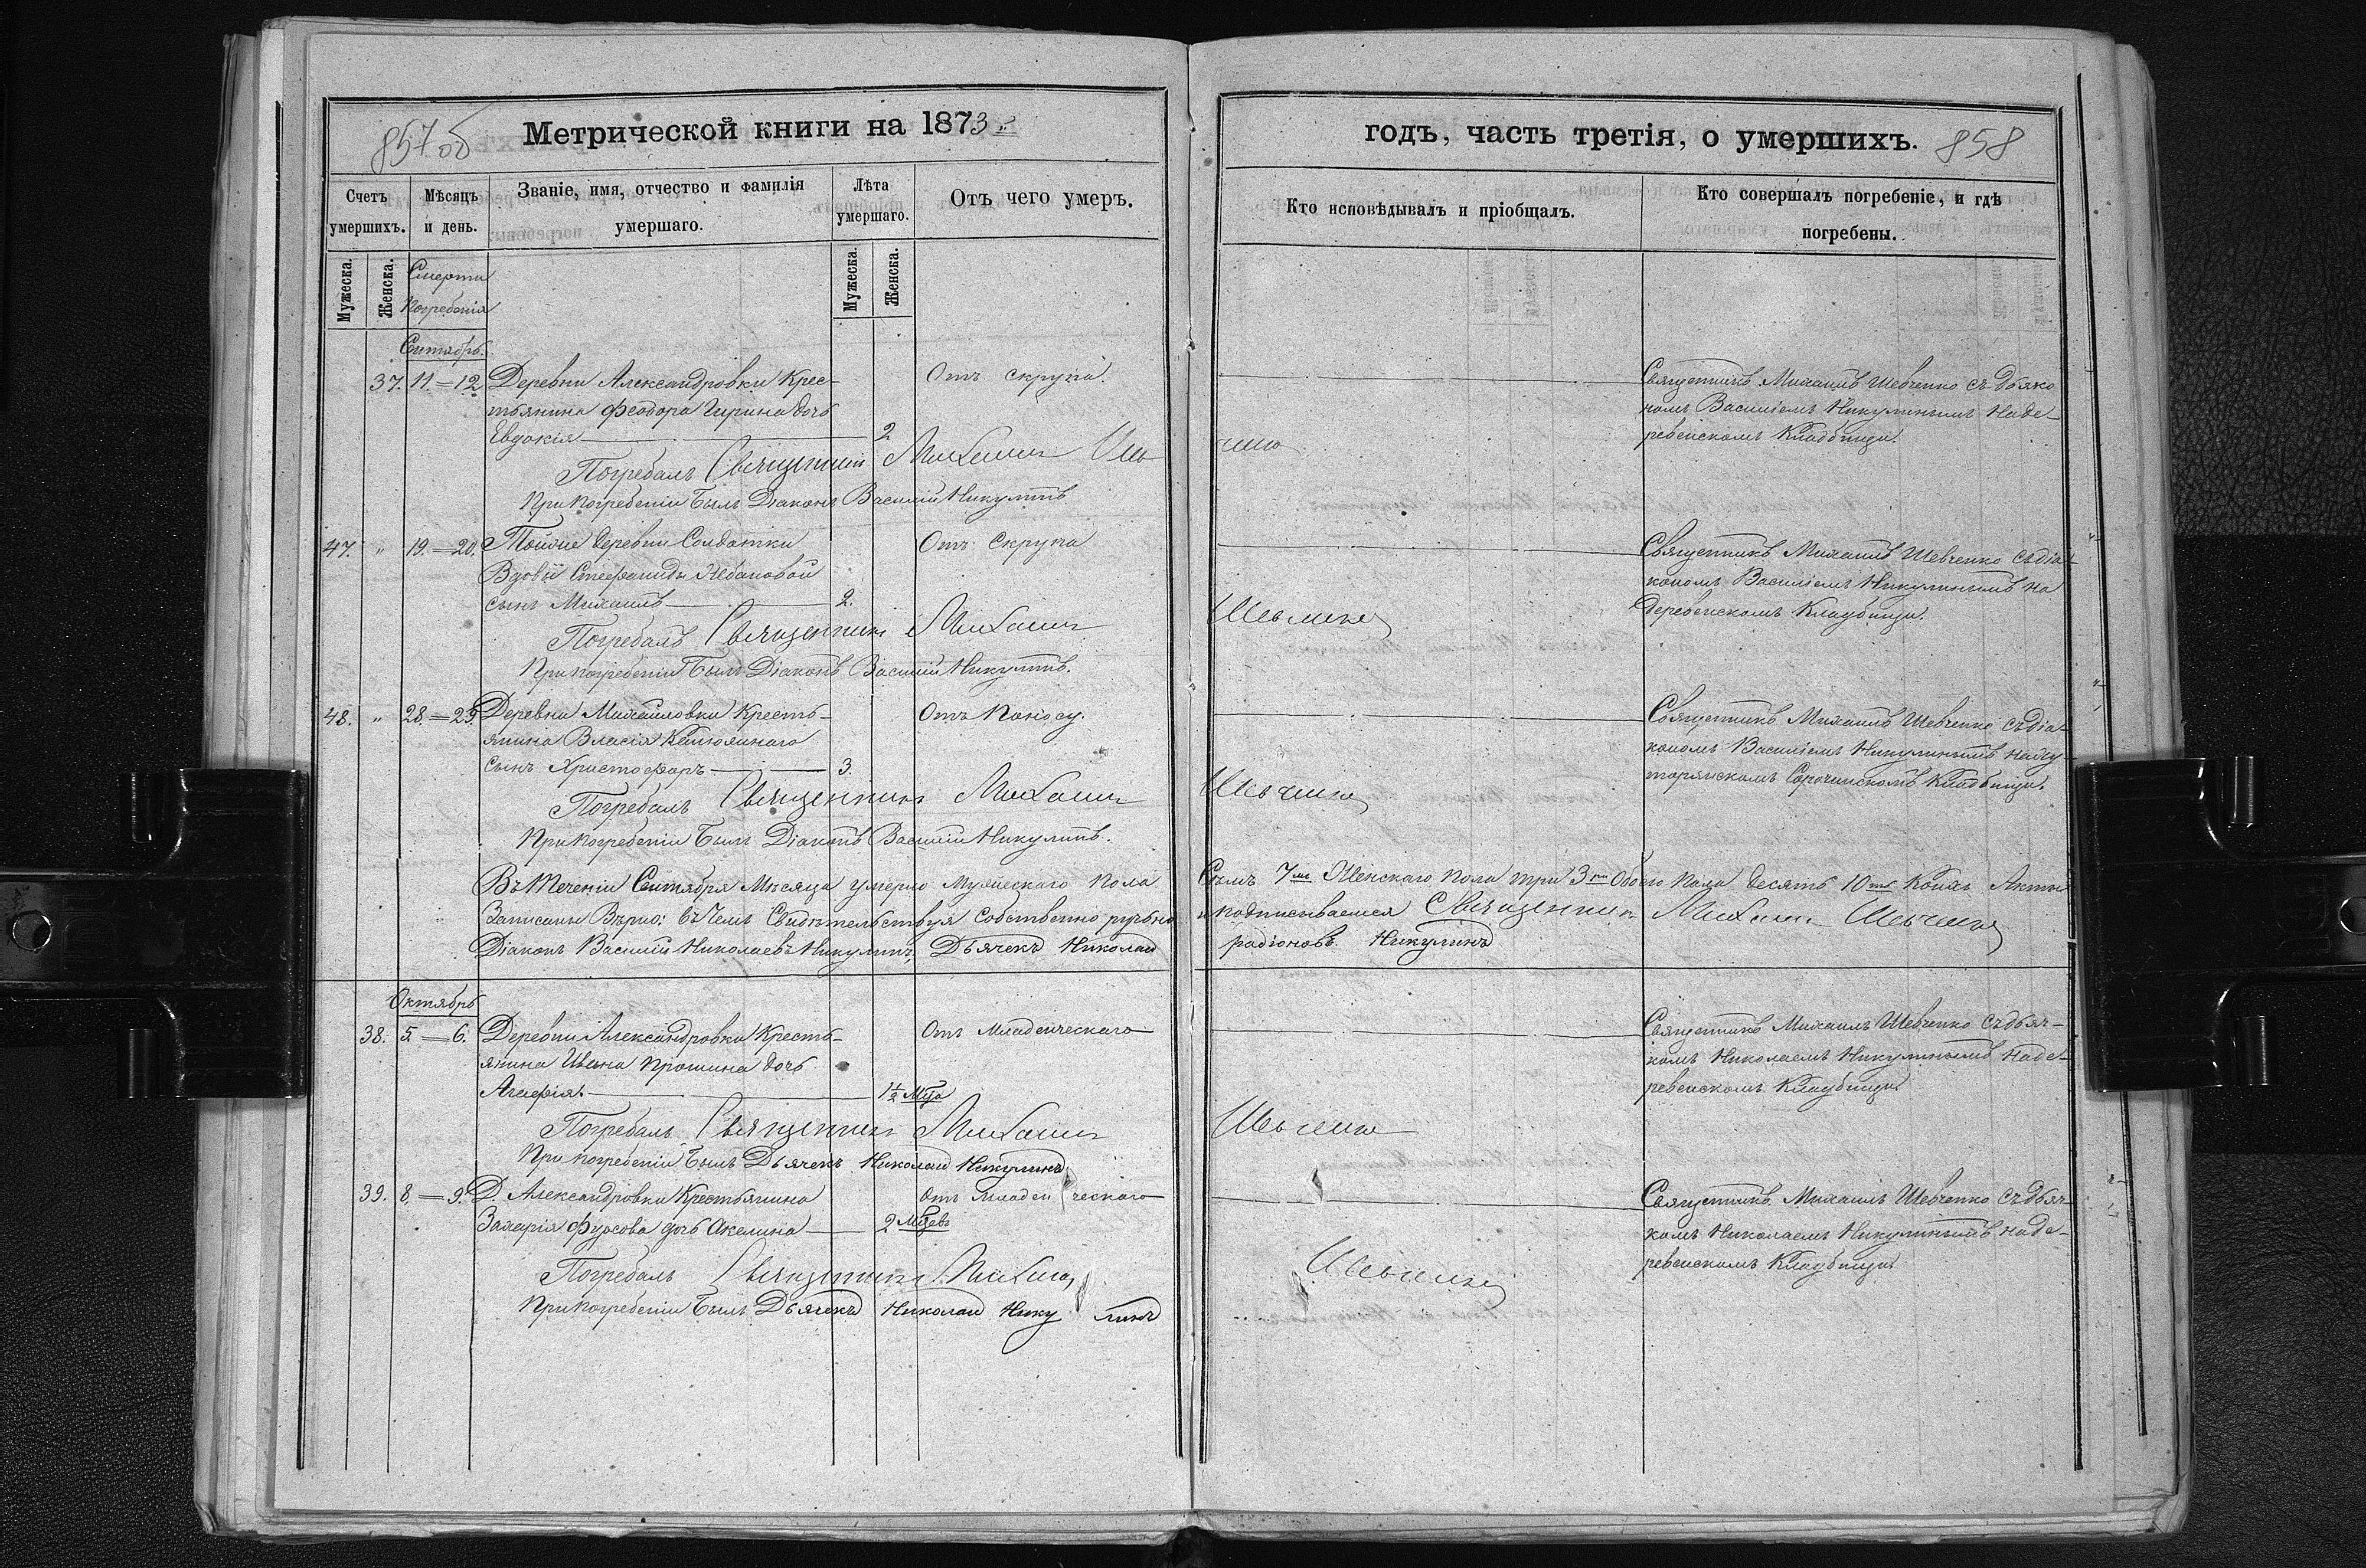 857 об
Метрической книги на 1873 й
Счетъ умершихъ.
Мѣсяцъ и день.
Званіе, имя, отчество и фамилія умершаго.
Лѣта умершаго.
Отъ чего умеръ.
Мужеска.
Женска.
Смерти
Погребенія
Мужеска.
Женска.
Сентябрь.
37. 11.=12. Деревни Александровки Крес-
тьянина Феодора Гирина дочь
Евдокія 2
Отъ скрупа.
Погребалъ Священникъ Михаилъ Шев
При погребеніи былъ Діаконъ Василій Никулинъ
47. " 19.=20. Тойже деревни Солдатки
Вдовы Стефаниды
сынъ Михаилъ 2.
Отъ Скрупа
Погребалъ Священникъ Михаилъ
При погребеніи былъ Діаконъ Василій Никулинъ.
48. " 28.=29. Деревни Михайловки Кресть-
янина Власія
сынъ Христофоръ 3.
Отъ Поносу.
Погребалъ Священникъ Михаилъ
При погребеніи былъ Діаконъ Василій Никулинъ.
Въ теченіи Сентября Мѣсяца умерло Мужескаго пола
Записаны Вѣрно: въ чемъ Свидѣтельствуя собственно ручьно
Діаконъ Василій Николаевъ Никулинъ, Дьячекъ Николай
Октябрь
38. 5.=6. Деревни Александровки Кресть-
янина Ивана Прошина дочь
Агафія. 1½ Мца
Отъ Младенческаго
Погребалъ Священникъ Михаилъ
При погребеніи былъ Дьячекъ Николай Никулинъ
39. 8.=9. Д. Александровки Крестьянина
Захарія Фурсова дочь Акелина 2 Мцевъ
Отъ Младенческаго
Погребалъ Священникъ Михаилъ
При погребеніи былъ Дьячекъ Николай Никулинъ
годъ, часть третія, о умершихъ.
858
Кто исповѣдывалъ и пріобщалъ.
Кто совершалъ погребеніе, и гдѣ погребены.
Священникъ Михаилъ Шевченко съ дьяко
номъ Василіемъ Никулинымъ на де-
ревенскомъ Кладбищи.
ченко
Священникъ Михаилъ Шевченко съ діа-
кономъ Василіемъ Никулинымъ на
деревенскомъ Кладбищи.
Шевченко
Священникъ Михаилъ Шевченко съ діа-
кономъ Василіемъ Никулинымъ на ху-
торянскомъ Сорочинскомъ Кладбищи.
Шевченко
Сѣмъ 7м Женскаго пола три 3ри Обоего пола десять 10ть Коихъ Акты
и подписываемся Священникъ Михаилъ Шевченко
радіоновъ Никулинъ
Священникъ Михаилъ Шевченко съ дьяч-
комъ Николаемъ Никулинымъ на де-
ревенскомъ Кладбищи
Шевченко
Священникъ Михаилъ Шевченко съ дьяч-
комъ Николаемъ Никулинымъ на де-
ревенскомъ Кладбищи
Шевченко